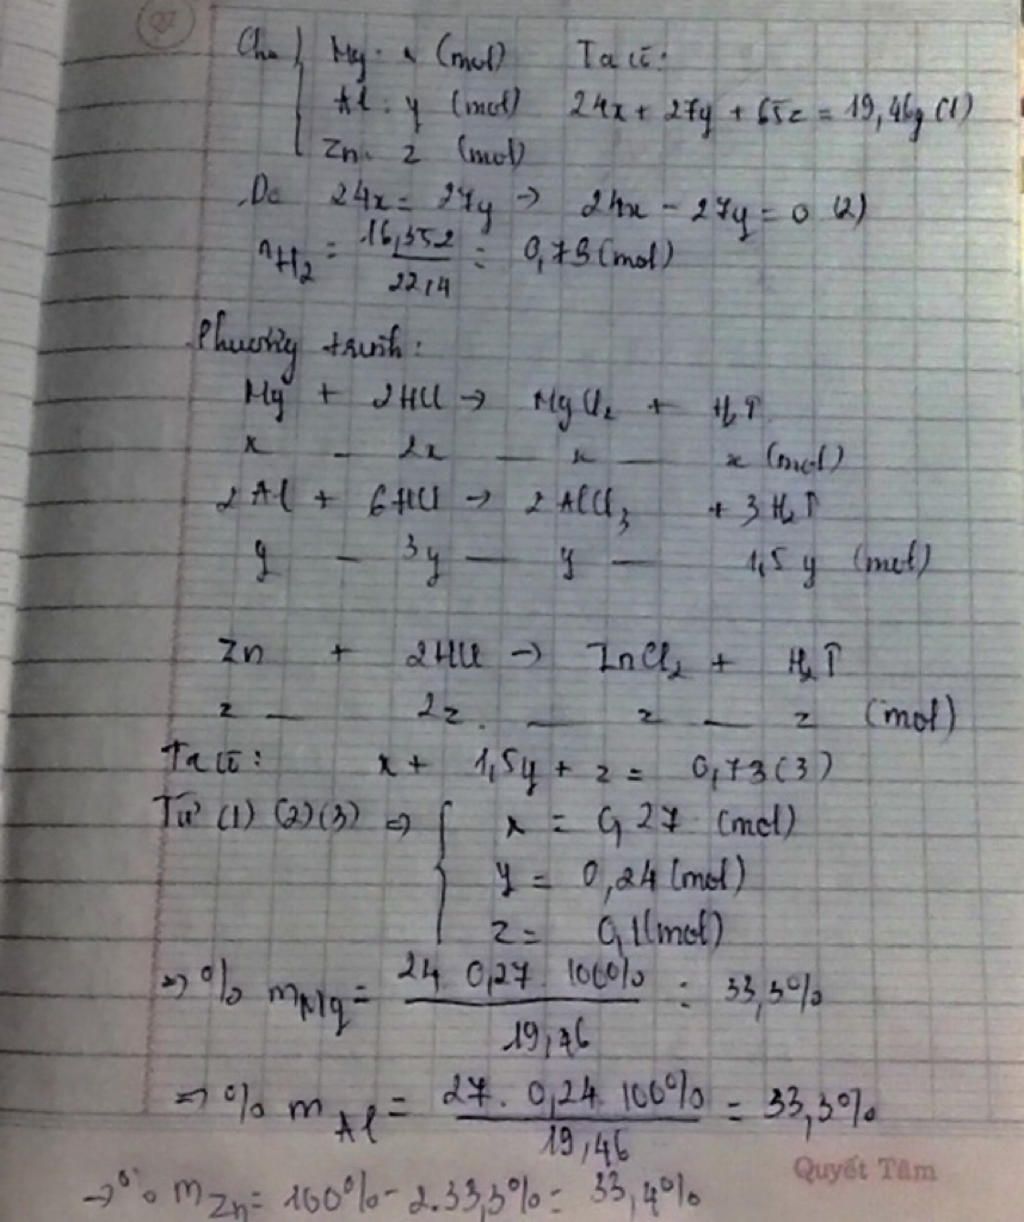 Cho { Mg: x (mol) Ta có:
Al: y (mol) 24x + 27y + 65z = 19,46g (1)
Zn: z (mol)
Do 24x = 27y → 24x - 27y = 0 (2)
nH₂ = 16,352 / 22,4 = 0,73 (mol)
Phương trình:
Mg + 2HCl → MgCl₂ + H₂↑
x — 2x — x — x (mol)
2Al + 6HCl → 2AlCl₃ + 3H₂↑
y — 3y — y — 1,5y (mol)
Zn + 2HCl → ZnCl₂ + H₂↑
z — 2z — z — z (mol)
Ta có: x + 1,5y + z = 0,73 (3)
Từ (1) (2) (3) ⇒ { x = 0,27 (mol)
y = 0,24 (mol)
z = 0,1 (mol)
⇒ % mMg = 24 . 0,27 . 100% / 19,46 = 33,3%
⇒ % mAl = 27 . 0,24 . 100% / 19,46 = 33,3%
→ % mZn = 100% - 2.33,3% = 33,4%
Quyết Tâm